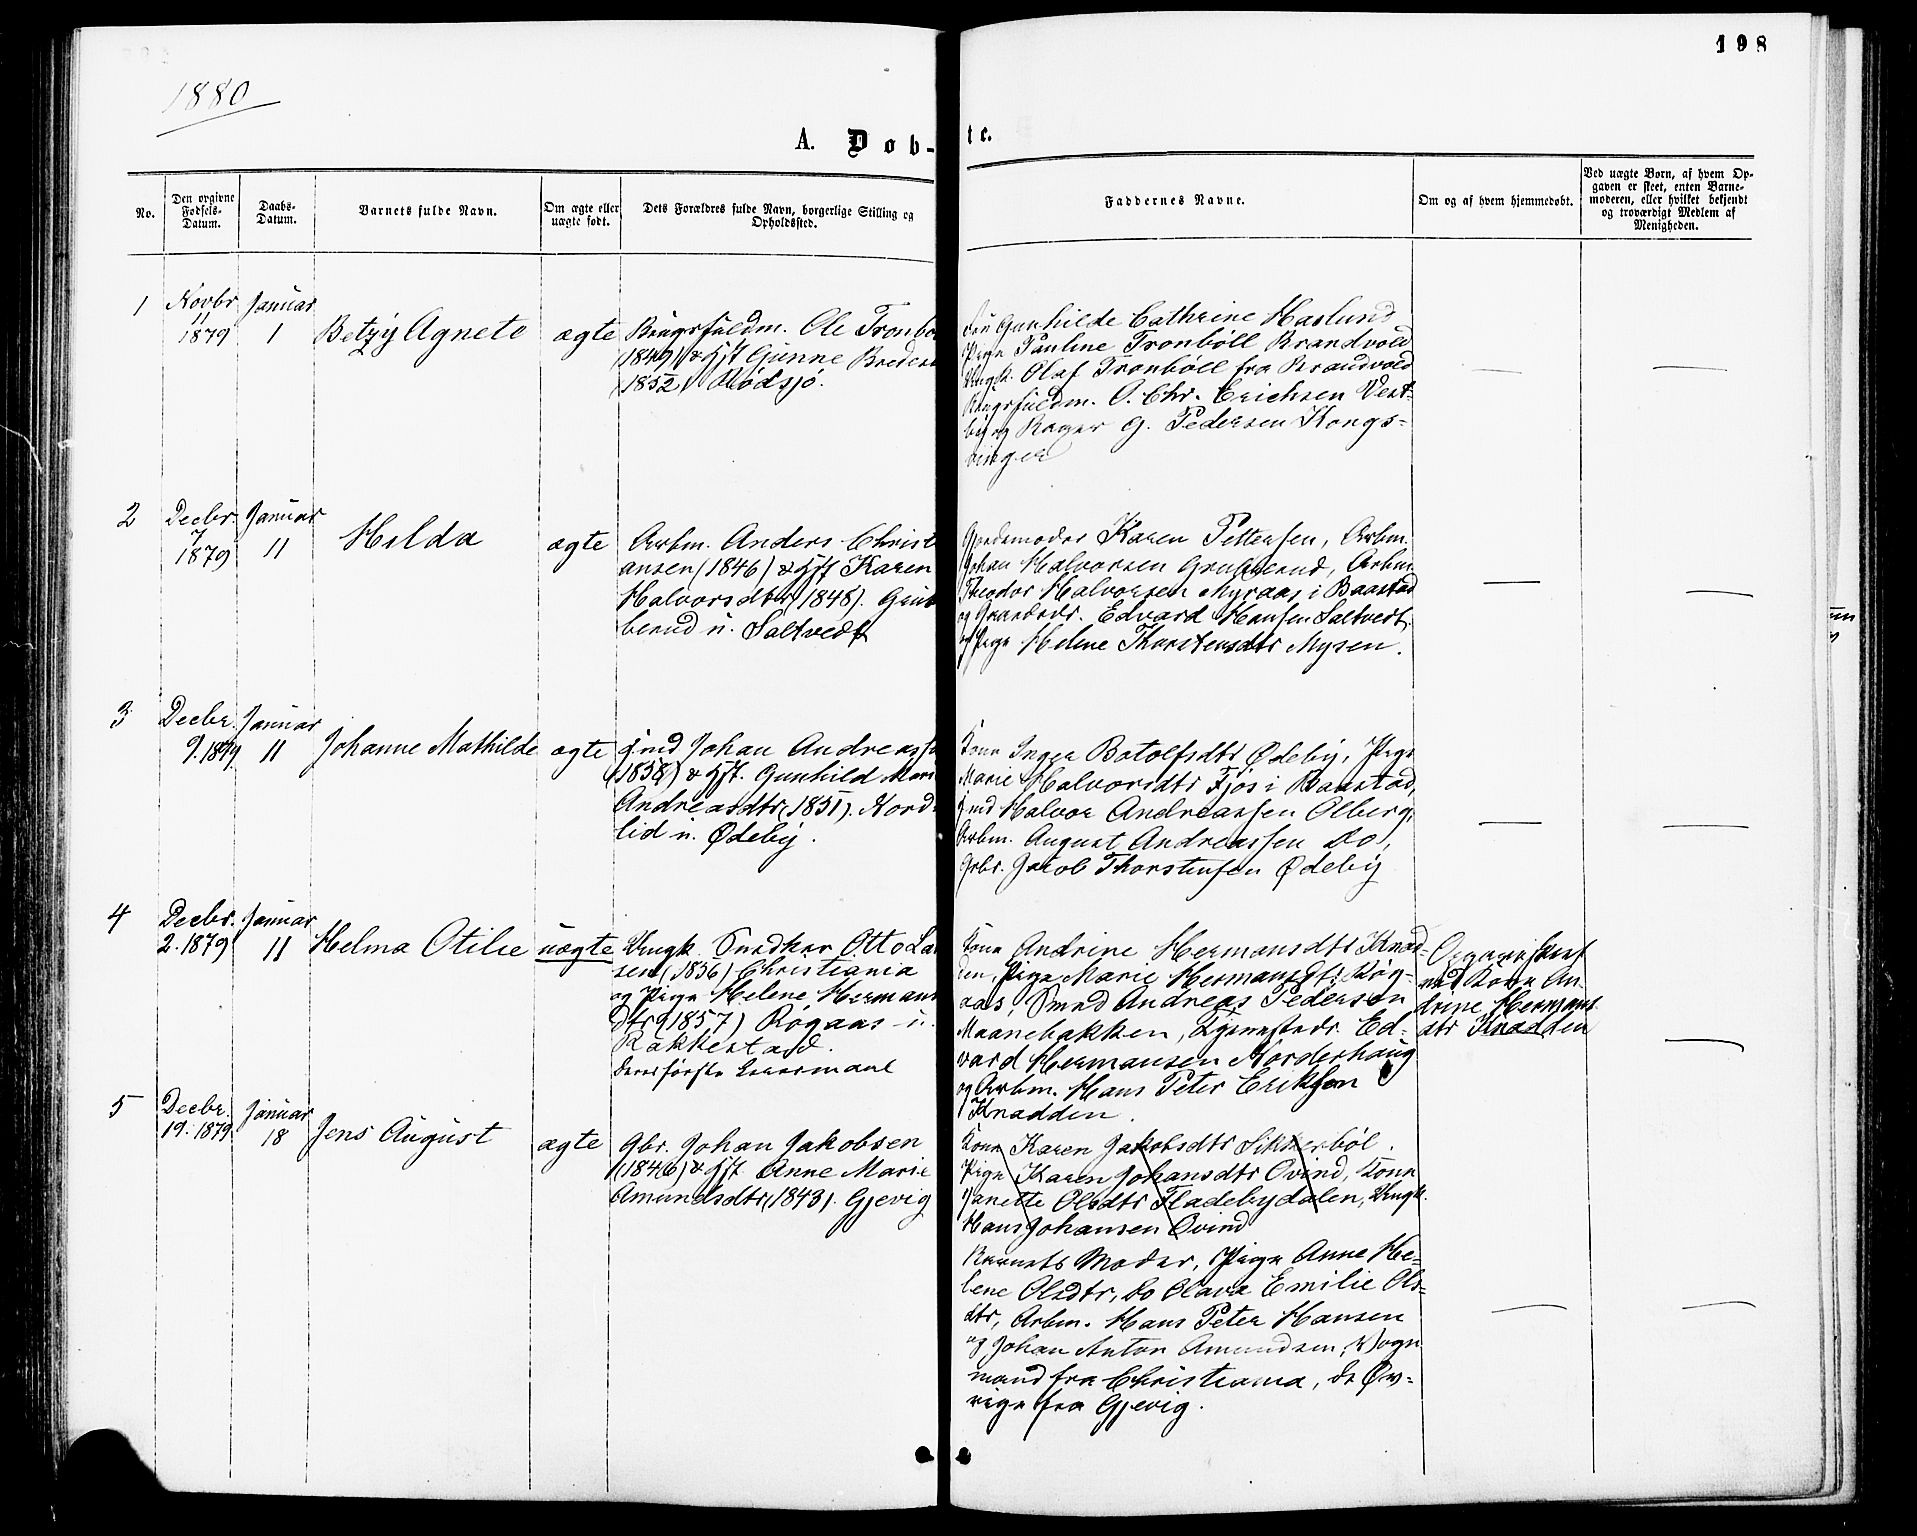 198
1880
A. Døb-
te.
No.
Den opgivne Fødsels-Datum.
Daabs-Datum.
Barnets fulde Navn.
Om ægte eller uægte født.
Dets Forældres fulde Navn, borgerlige Stilling og Opholdssted.
Faddernes Navne.
Om og af hvem hjemmedøbt.
Ved uægte Børn, af hvem Op-
gaven er skeet, enten Barne-
moderen, eller hvilket bekjendt
og troværdigt Medlem af
Menigheden.
1
Novbr 11 1879
Januar 1
Betzy Agnete
ægte
Brugsfuldm. Ole Tronbø
(1849) & Hst Gunne
1852) Rødsjø.
Gunhilde Cathrine Haslund
Pige Pauline Tronbøll Brandvold
Ungk. Olaf Tronbøll fra Brandvold
Brugsfuldm. O. Chr. Erichsen Vest-
by og G. Pedersen Kongs-
vinger
2
Decbr. 7 1879
Januar 11
Hilda
ægte
Arbm. Anders Christ
ansen (1846) & Hst Karen
Halvorsdtr (1848). Grub
berud u. Saltvedt
Gjordemoder Karen Pettersen, Arbm.
Johan Halvorsen Grubberud, Arbm.
Theodor Halvorsen Myraas i Baastad
og Edvard Hansen Saltvedt
og Pige Helene Thorstensdtr Mysen.
3
Decbr. 9. 1879
Januar 11
Johanne Mathilde
ægte
Smd Johan Andreass
(1858) & Hst. Gunhild Mari
Andreasdtr (1851). Nord-
lid u. Ødeby.
Kone Inger Botolfsdtr Ødeby, Pige
Marie Halvorsdtr Fjøs i Baastad,
Smd Halvor Andreassen Olberg,
Arbm. August Andreassen do,
Gbr. Jacob Thorstensen Ødeby
4
Decbr. 2. 1879
Januar 11
Helma Otilie
uægte
Ungk. Snedker Otto La
sen (1856) Christiania
og Pige Helene Hermans
dtr (1857) Røgaas u.
Rakkestad.
Deres første Leiermaal
Kone Andrine Hermansdtr Knad-
den, Pige Marie Hermansdtr Røg-
aas, Smd Andreas Pedersen
Maanebakken, Ed-
vard Hermansen Norderhaug
og Arbm. Hans Peter Eriksen
Knadden.
ved Kone An-
drine Hermans
dtr Knadden
5
Decbr. 19. 1879
Januar 18
Jens August
ægte
Gbr. Johan Jakobsen
(1846) & Hst. Anne Marie
Amundsdtr (1843). Gjevig
Kone Karen Jakobsdtr Sikkerbøl.
Pige Karen Johansdtr Ovind, Kone
Janette Olsdtr Fladebydalen, Ungk.
Hans Johansen Ovind
Barnets Moder, Pige Anne He-
lene Olsdtr, do Olava Emilie Ols-
dtr, Arbm. Hans Peter Hansen
og Johan Anton Amundsen, Vogn
mand fra Christiania, de Øv-
rige fra Gjevig.